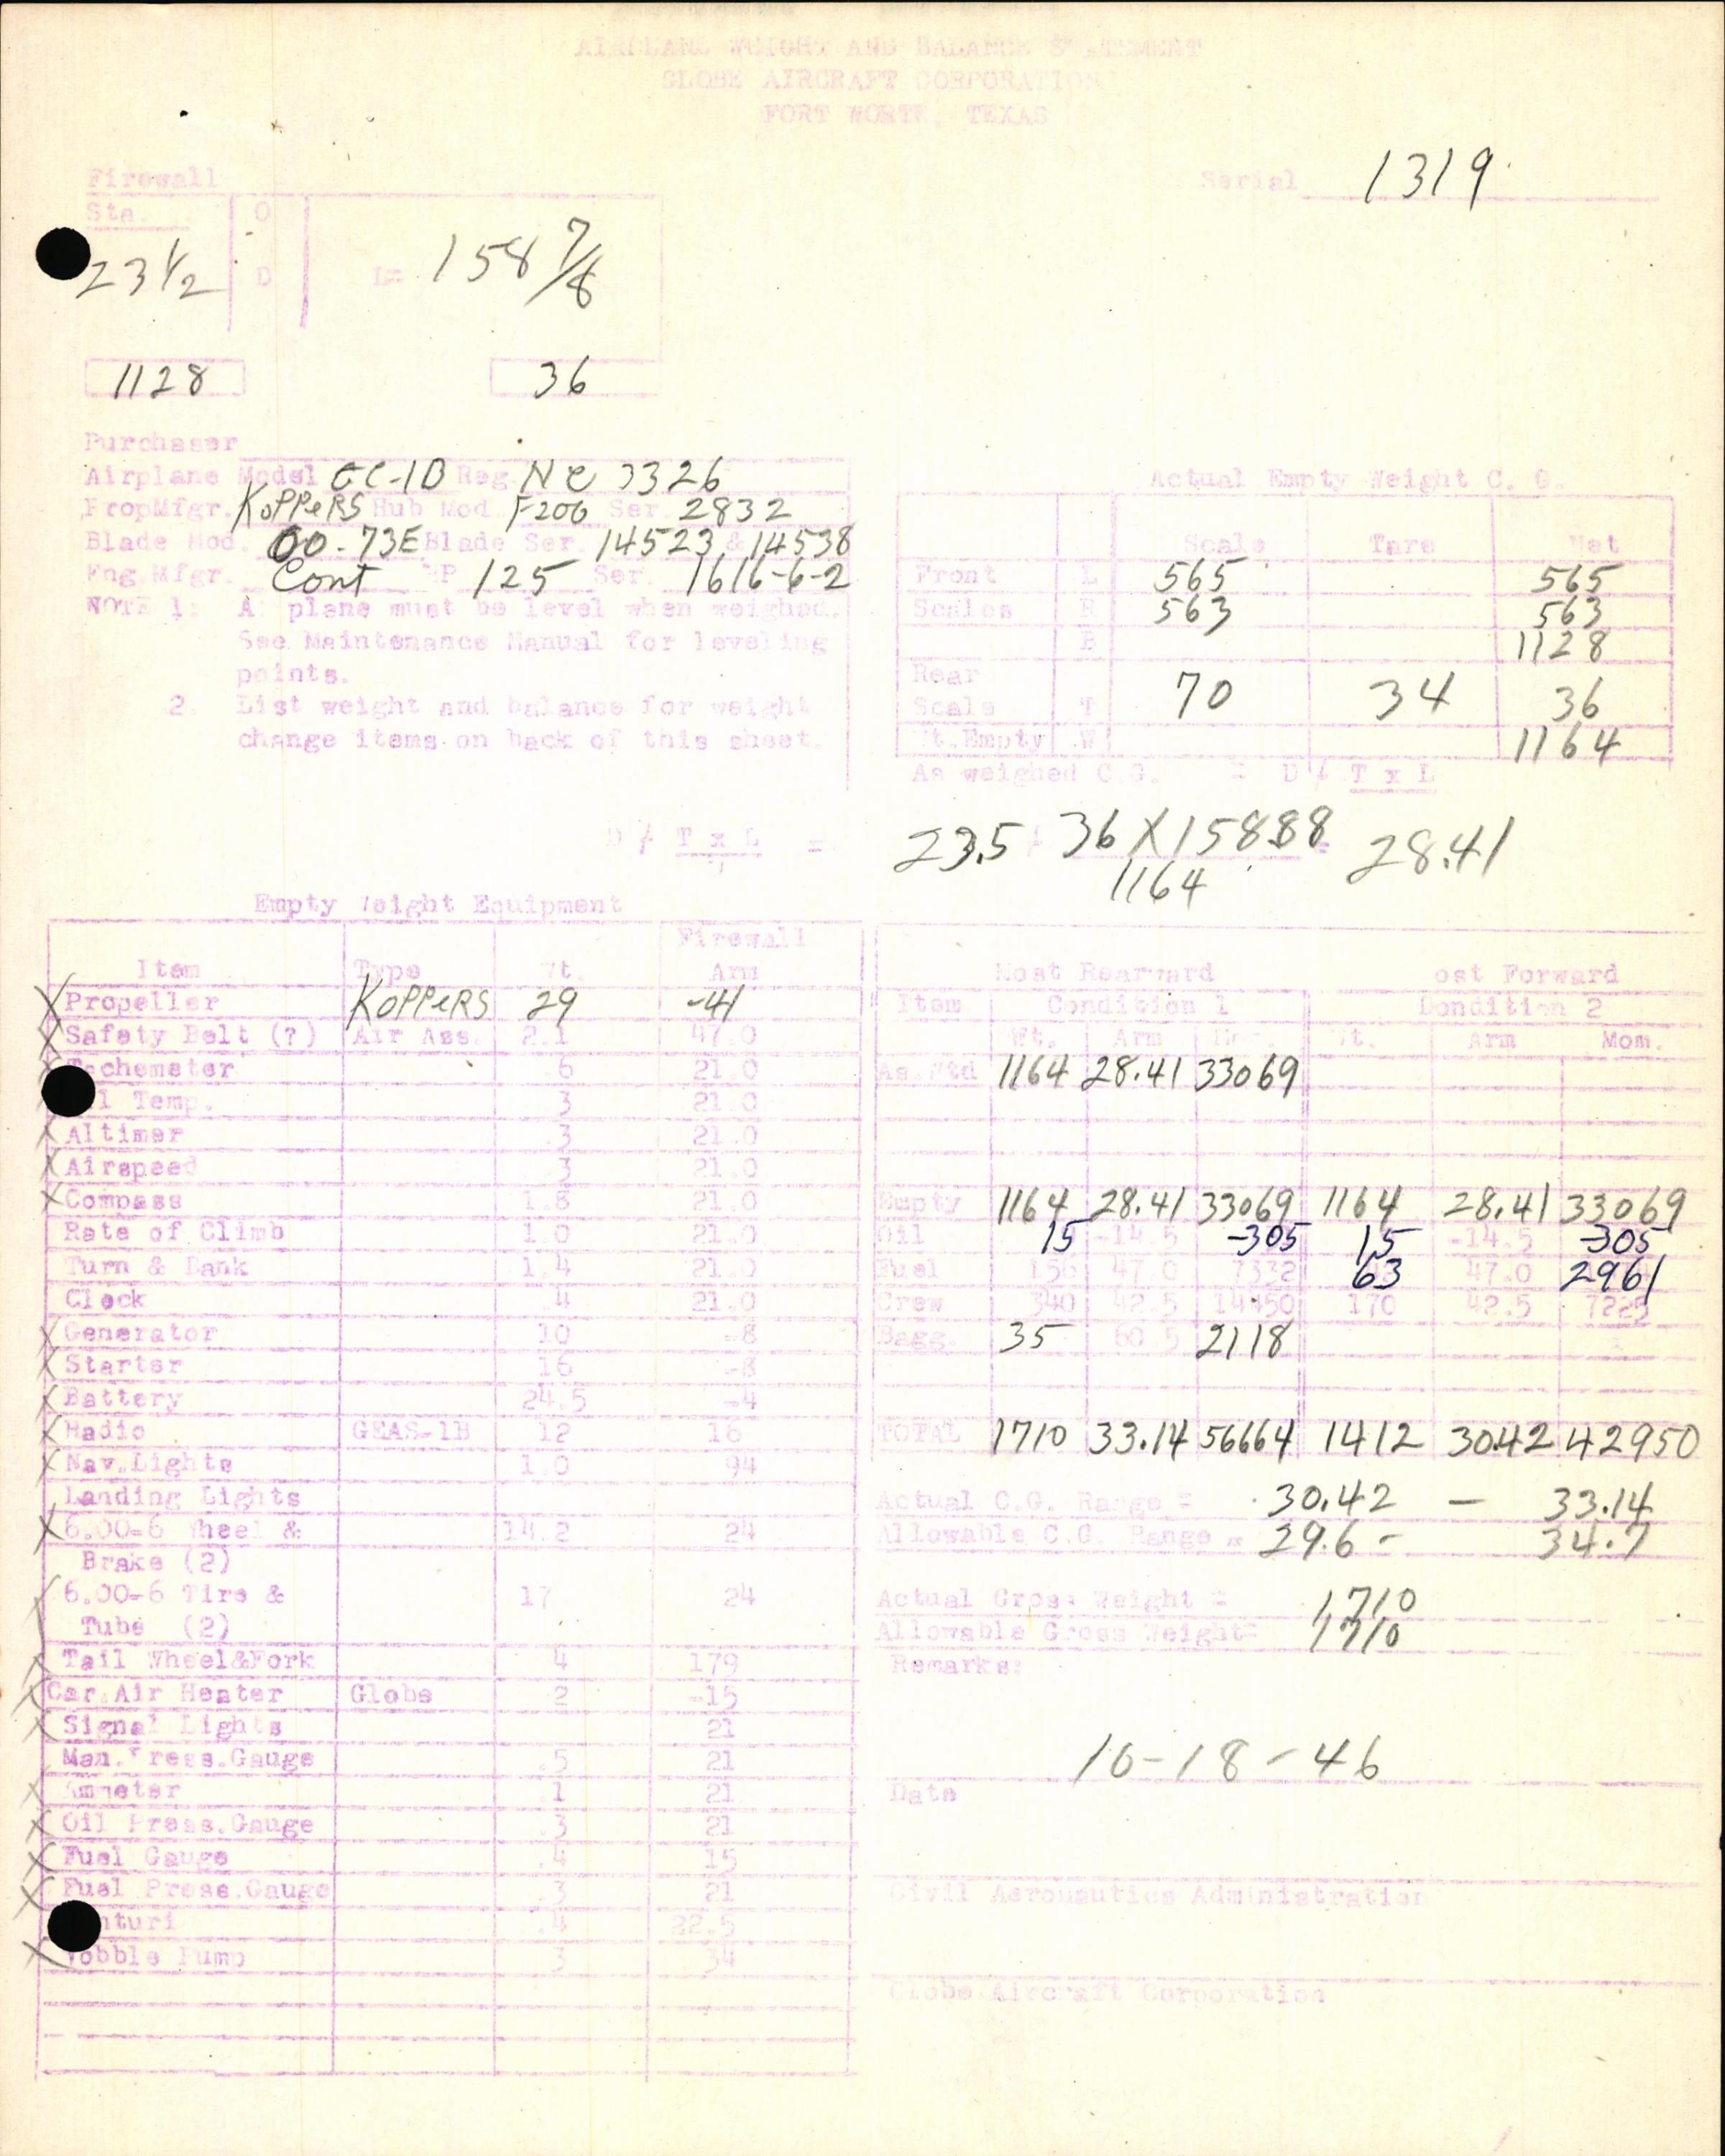 AIRPLANE WEIGHT AND BALANCE STATEMENT
GLOBE AIRCRAFT CORPORATION
FORT WORTH, TEXAS
Serial 1319
Firewall
Sta. O
23 1/2 D L= 158 7/8
1128 36
Purchaser
Airplane Model GC-1B Reg. NC 3326
Prop Mfgr. KOPPERS Hub Mod. F200 Ser. 2832
Blade Mod. 00-73E Blade Ser. 14523 & 14538
Eng. Mfgr. Cont HP 125 Ser. 1616-6-2
NOTE 1: Airplane must be level when weighed.
See Maintenance Manual for leveling
points.
2. List weight and balance for weight
change items on back of this sheet.
Actual Empty Weight C. G.
Scale Tare Net
Front L 565 565
Scales R 563 563
B 1128
Rear
Scale T 70 34 36
Wt. Empty W 1164
As weighed C.G. = D / T x L
D / T x L = 23.5 / 36 X 158.88 = 28.41
1164
Empty Weight Equipment
Firewall
Item Type Wt. Arm
X Propeller KOPPERS 29 -41
X Safety Belt (?) Air Ass. 2.1 47.0
Tachometer .6 21.0
Oil Temp. .3 21.0
X Altimer .3 21.0
X Airspeed .3 21.0
X Compass 1.8 21.0
Rate of Climb 1.0 21.0
Turn & Bank 1.4 21.0
Clock .4 21.0
X Generator 10 -8
X Starter 16 -8
X Battery 24.5 -4
X Radio GEAS-1B 12 16
X Nav.Lights 1.0 94
Landing Lights
X 6.00-6 Wheel & 14.2 24
Brake (2)
X 6.00-6 Tire & 17 24
Tube (2)
X Tail Wheel&Fork 4 179
X Car.Air Heater Globe 2 -15
X Signal Lights 21
Man.Press.Gauge .5 21
X Ammeter .1 21
X Oil Press.Gauge .3 21
X Fuel Gauge .4 15
X Fuel Press.Gauge .3 21
Venturi .4 22.5
X Wobble Pump 3 34
Most Rearward Most Forward
Item Condition 1 Condition 2
Wt. Arm Mom. Wt. Arm Mom.
As.Wtd 1164 28.41 33069
Empty 1164 28.41 33069 1164 28.41 33069
Oil 15 -14.5 -305 15 -14.5 -305
Fuel 156 47.0 7332 63 47.0 2961
Crew 340 42.5 14450 170 42.5 7225
Bagg. 35 60.5 2118
TOTAL 1710 33.14 56664 1412 30.42 42950
Actual C.G. Range = 30.42 - 33.14
Allowable C.G. Range = 29.6 - 34.7
Actual Gross Weight = 1710
Allowable Gross Weight= 1710
Remarks:
10-18-46
Date
Civil Aeronautics Administration
Globe Aircraft Corporation